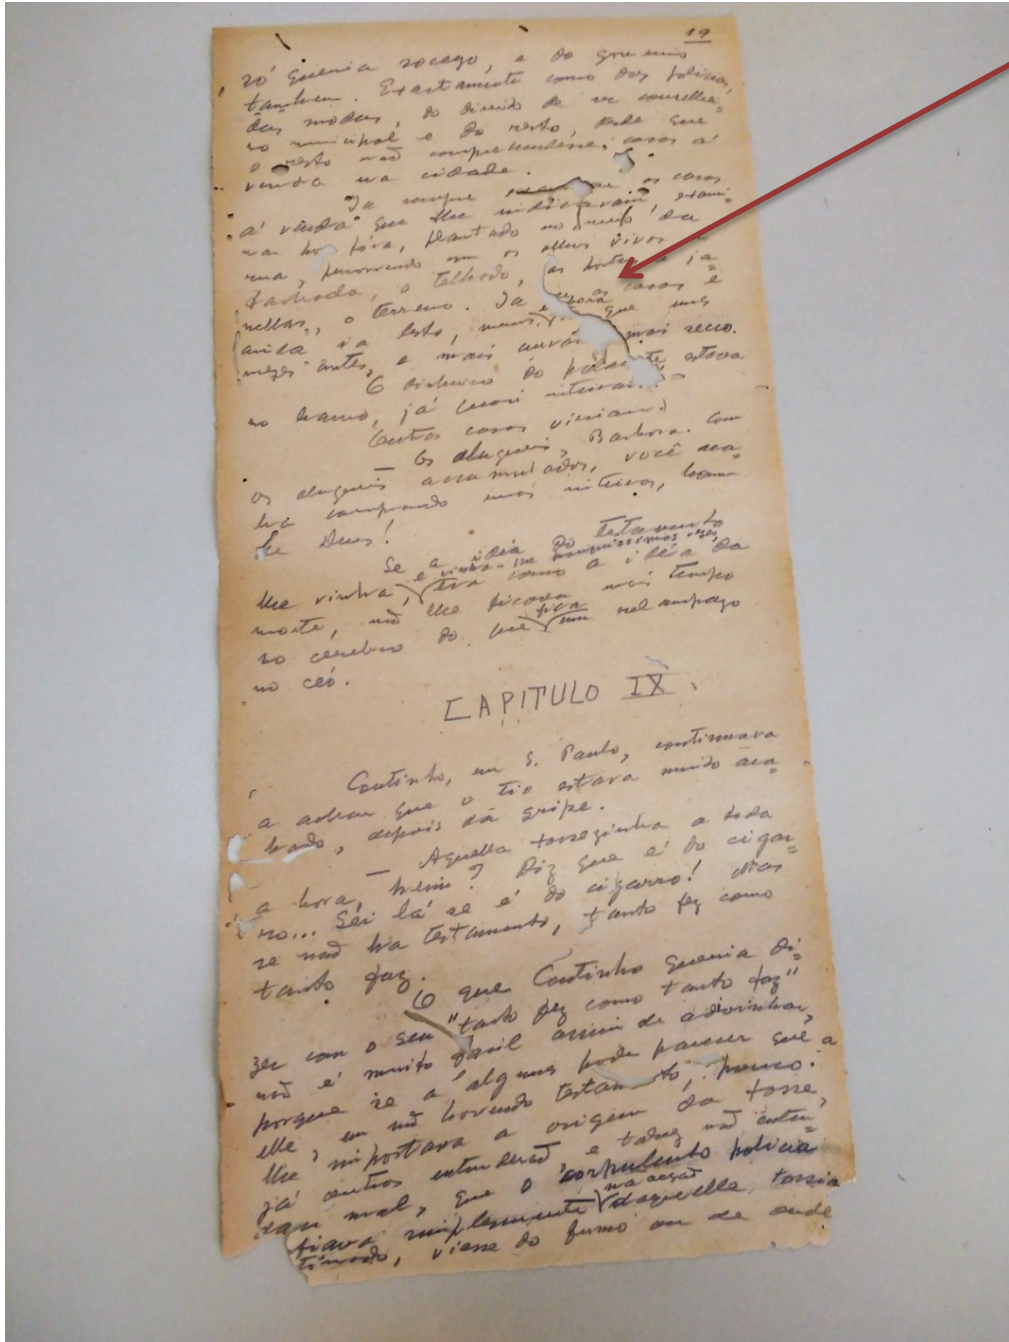 19
só queria socego, e do governo
tambem. Exactamente como dos policias,
das modas, do direito de ser conselhei=
ro municipal e do resto, desde que
o resto não comprehendesse: casas á
venda na cidade.
Ia sempre as casas
á venda que lhe indicavam,
por fóra, plantado no meio da
rua, percorrendo com os olhos vivos a
fachada, o telhado, as portas e ja=
nellas, o terreno. Ia as casas e
ainda ia lesto, menos, que uns
mezes antes, e mais mais secco.
O dinheiro do palacete estava
no banco, já quasi inteiro.
Outras casas viriam.
— Os alugueis, Barbosa. Com
os alugueis accumulados, você aca=
ba comprando mais inteiros, louva=
do Deus!
Se a idéa do testamento
e vinha-lhe pouquissimas vezes,
lhe vinha, era como a idéa da
morte, não lhe ficava mais tempo
no cerebro do que fica um relampago
no céo.
CAPITULO IX.
Coutinho, em S. Paulo, continuava
a achar que o tio estava muito aca=
bado, depois da gripe.
— Aquella tossezinha a toda
a hora, hein? Diz que é do cigar=
ro... Sei lá se é do cigarro! Mas
se não ha testamento, tanto fez como
tanto faz.
O que Coutinho queria di=
zer com o seu "tanto fez como tanto faz"
não é muito facil assim de adivinhar,
porque se a alguns pode parecer que a
elle, em não havendo testamento, pouco
lhe importava a origem da tosse,
já outros entenderão, e talvez não enten=
dam mal, que o corpulento policia
ficava simplesmente na acção daquelle tossia
timido, viesse do fumo ou de onde